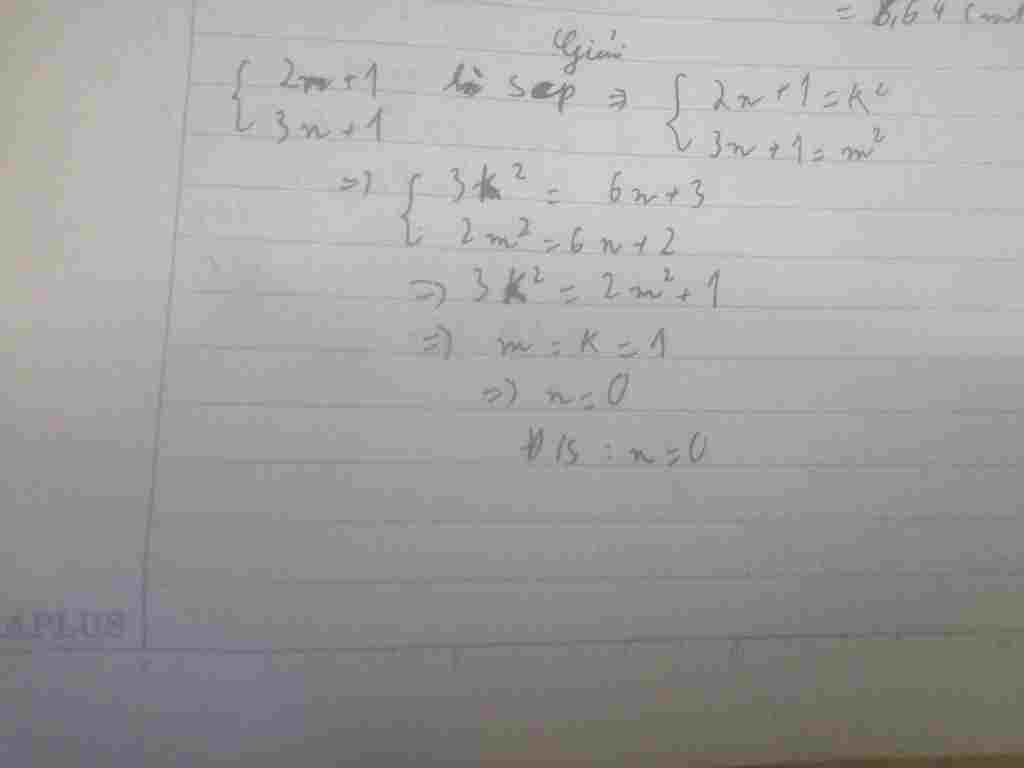 = 8,64 (m
Giải
{ 2n+1 là scp ⇒ { 2n+1=k²
{ 3n+1 { 3n+1=m²
=> { 3k² = 6n+3
{ 2m² = 6n+2
=> 3k² = 2m²+1
=> m = k = 1
=> n = 0
Đ/S : n = 0
APLUS